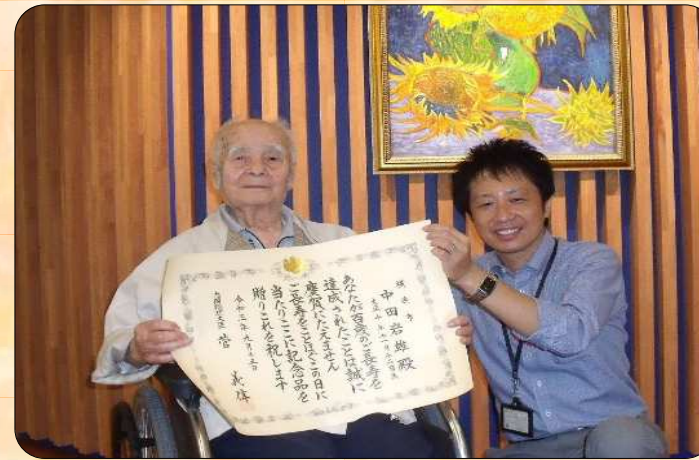 横浜市
中田岩雄殿
あなたが百歳のご長寿を
達成されたことは誠に
慶賀にたえません
ご長寿をことほぐこの日に
当たりここに記念品を
贈りこれを祝します
令和三年九月十五日
内閣総理大臣 菅 義偉